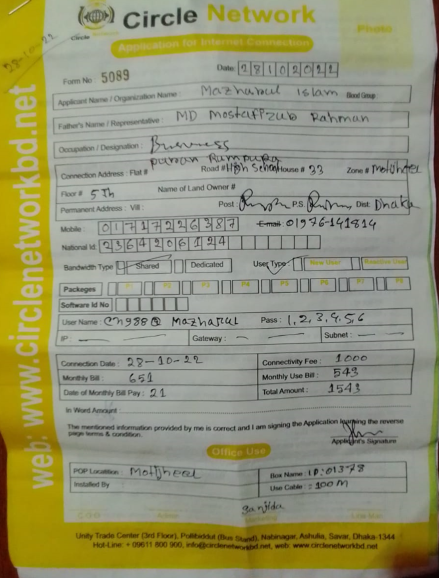 Circle Network
Circle
Photo
Application for Internet Connection
28-10-22
Date: 28102022
Form No 5089
Applicant Name / Organization Name: Mazharul Islam Blood Group
Father's Name / Representative: MD Mostaffizub Rahman
Occupation / Designation: Bueness
puran Rampura
Connection Address: Flat # Road #High School House # 33 Zone #
Floor # 5th Name of Land Owner #
Permanent Address: Vill: Post P.S. Dist: Dhaka
Mobile: 01717226387 E-mail 01976-141814
National Id: 2364206124
Bandwidth Type Shared Dedicated User Type New User Reactive User
Packeges P1 P2 P3 P4 P5 P6
Software Id No
User Name: Ch988@ Mazharul Pass: 1,2,3,4,5,6
IP: Gateway: Subnet:
Connection Date: 28-10-22 Connectivity Fee: 1000
Monthly Bill: 651 Monthly Use Bill: 543
Date of Monthly Bill Pay: 21 Total Amount: 1543
In Word Amount:
The mentioned information provided by me is correct and I am signing the Application knowing the reverse
page terms & condition.
Applicant's Signature
Office Use
POP Location: Box Name: ID:01378
Installed By Use Cable: 100M
Sanjida
Unity Trade Center (3rd Floor), Pollibiddut (Bus Stand), Nabinagar, Ashulia, Savar, Dhaka-1344
Hot-Line: + 09611 800 900, info@circlenetworkbd.net, web: www.circlenetworkbd.net
web: www.circlenetworkbd.net